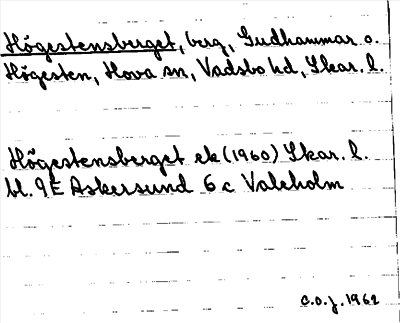 Högestensberget, berg, Gudhammar o.
Högesten, Hova sn, Vadsbo hd, Skar. l.
Högestensberget ek (1960) Skar. l.
bl. 9E Askersund 6 c Valeholm
C.O.J. 1962